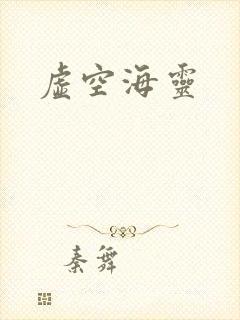 虛空海靈
秦舞